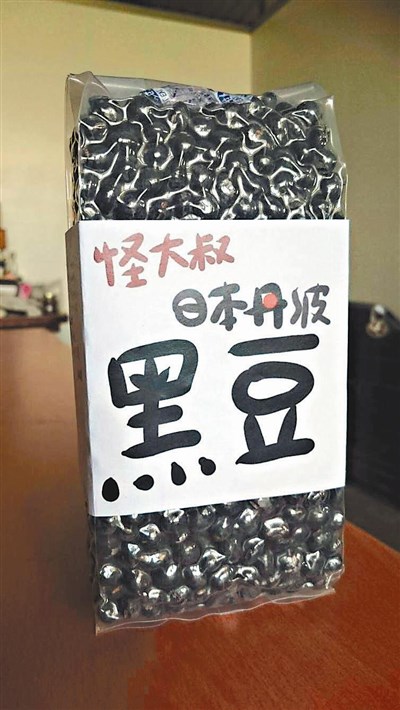 怪大叔
日本丹波
黑豆